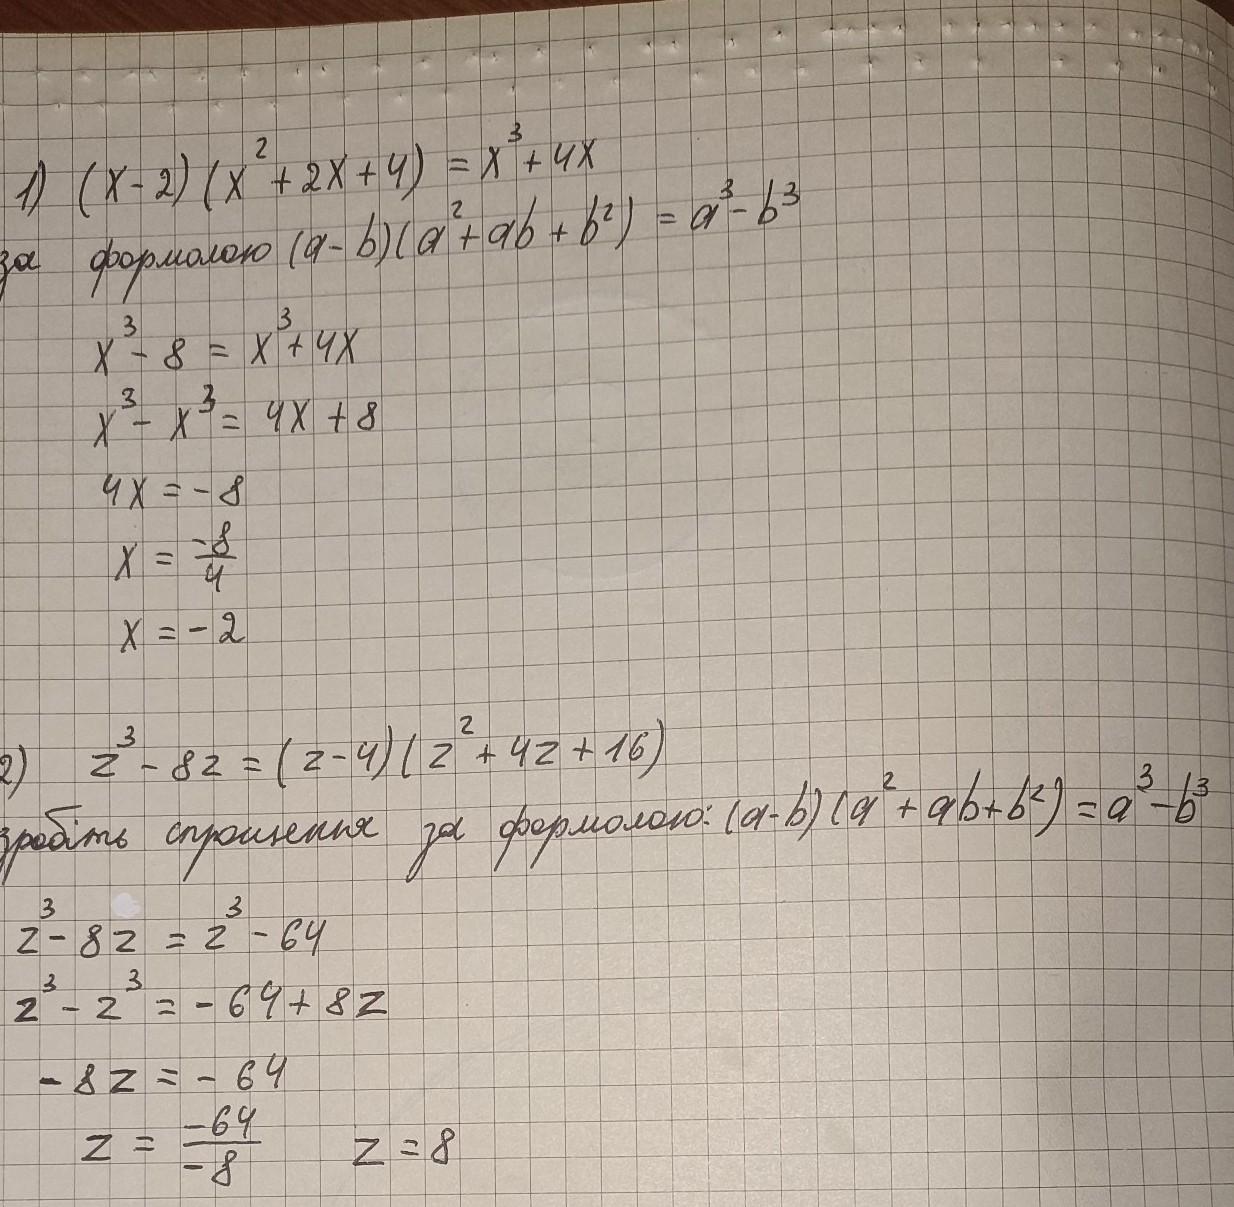 1) (x-2)(x²+2x+4) = x³+4x
за формолою (a-b)(a²+ab+b²) = a³-b³
x³-8 = x³+4x
x³-x³ = 4x+8
4x = -8
x = -8/4
x = -2
2) z³-8z = (z-4)(z²+4z+16)
зробіть спрощення за формолою: (a-b)(a²+ab+b²) = a³-b³
z³-8z = z³-64
z³-z³ = -64+8z
-8z = -64
z = -64/-8 z = 8